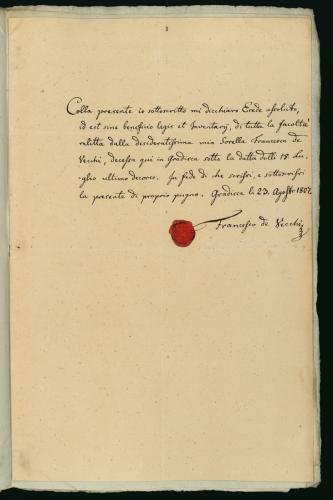 Colla presente io sottoscritto mi dicchiaro Erede assoluto,
id est sine beneficio legis et Inventarÿ, di tutta la facoltà
relitta dalla desideratissima mia Sorella Francesca de
Vecchi, decessa qui in Gradisca sotto la datta delli 18. Lu-
glio ultimo decorso. In fede di che scrissi, e sottoscrissi
la presente di proprio pugno. Gradisca le 23. Agosto 1807.
Francesco de Vecchi